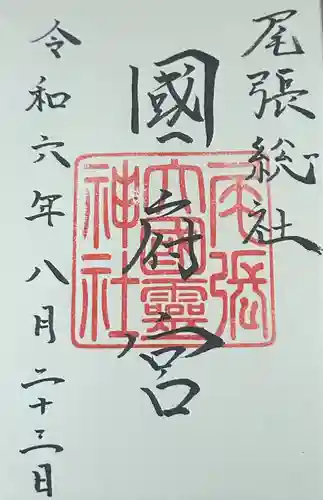 尾張総社
國府宮
尾張
大國靈
神社
令和六年八月二十三日